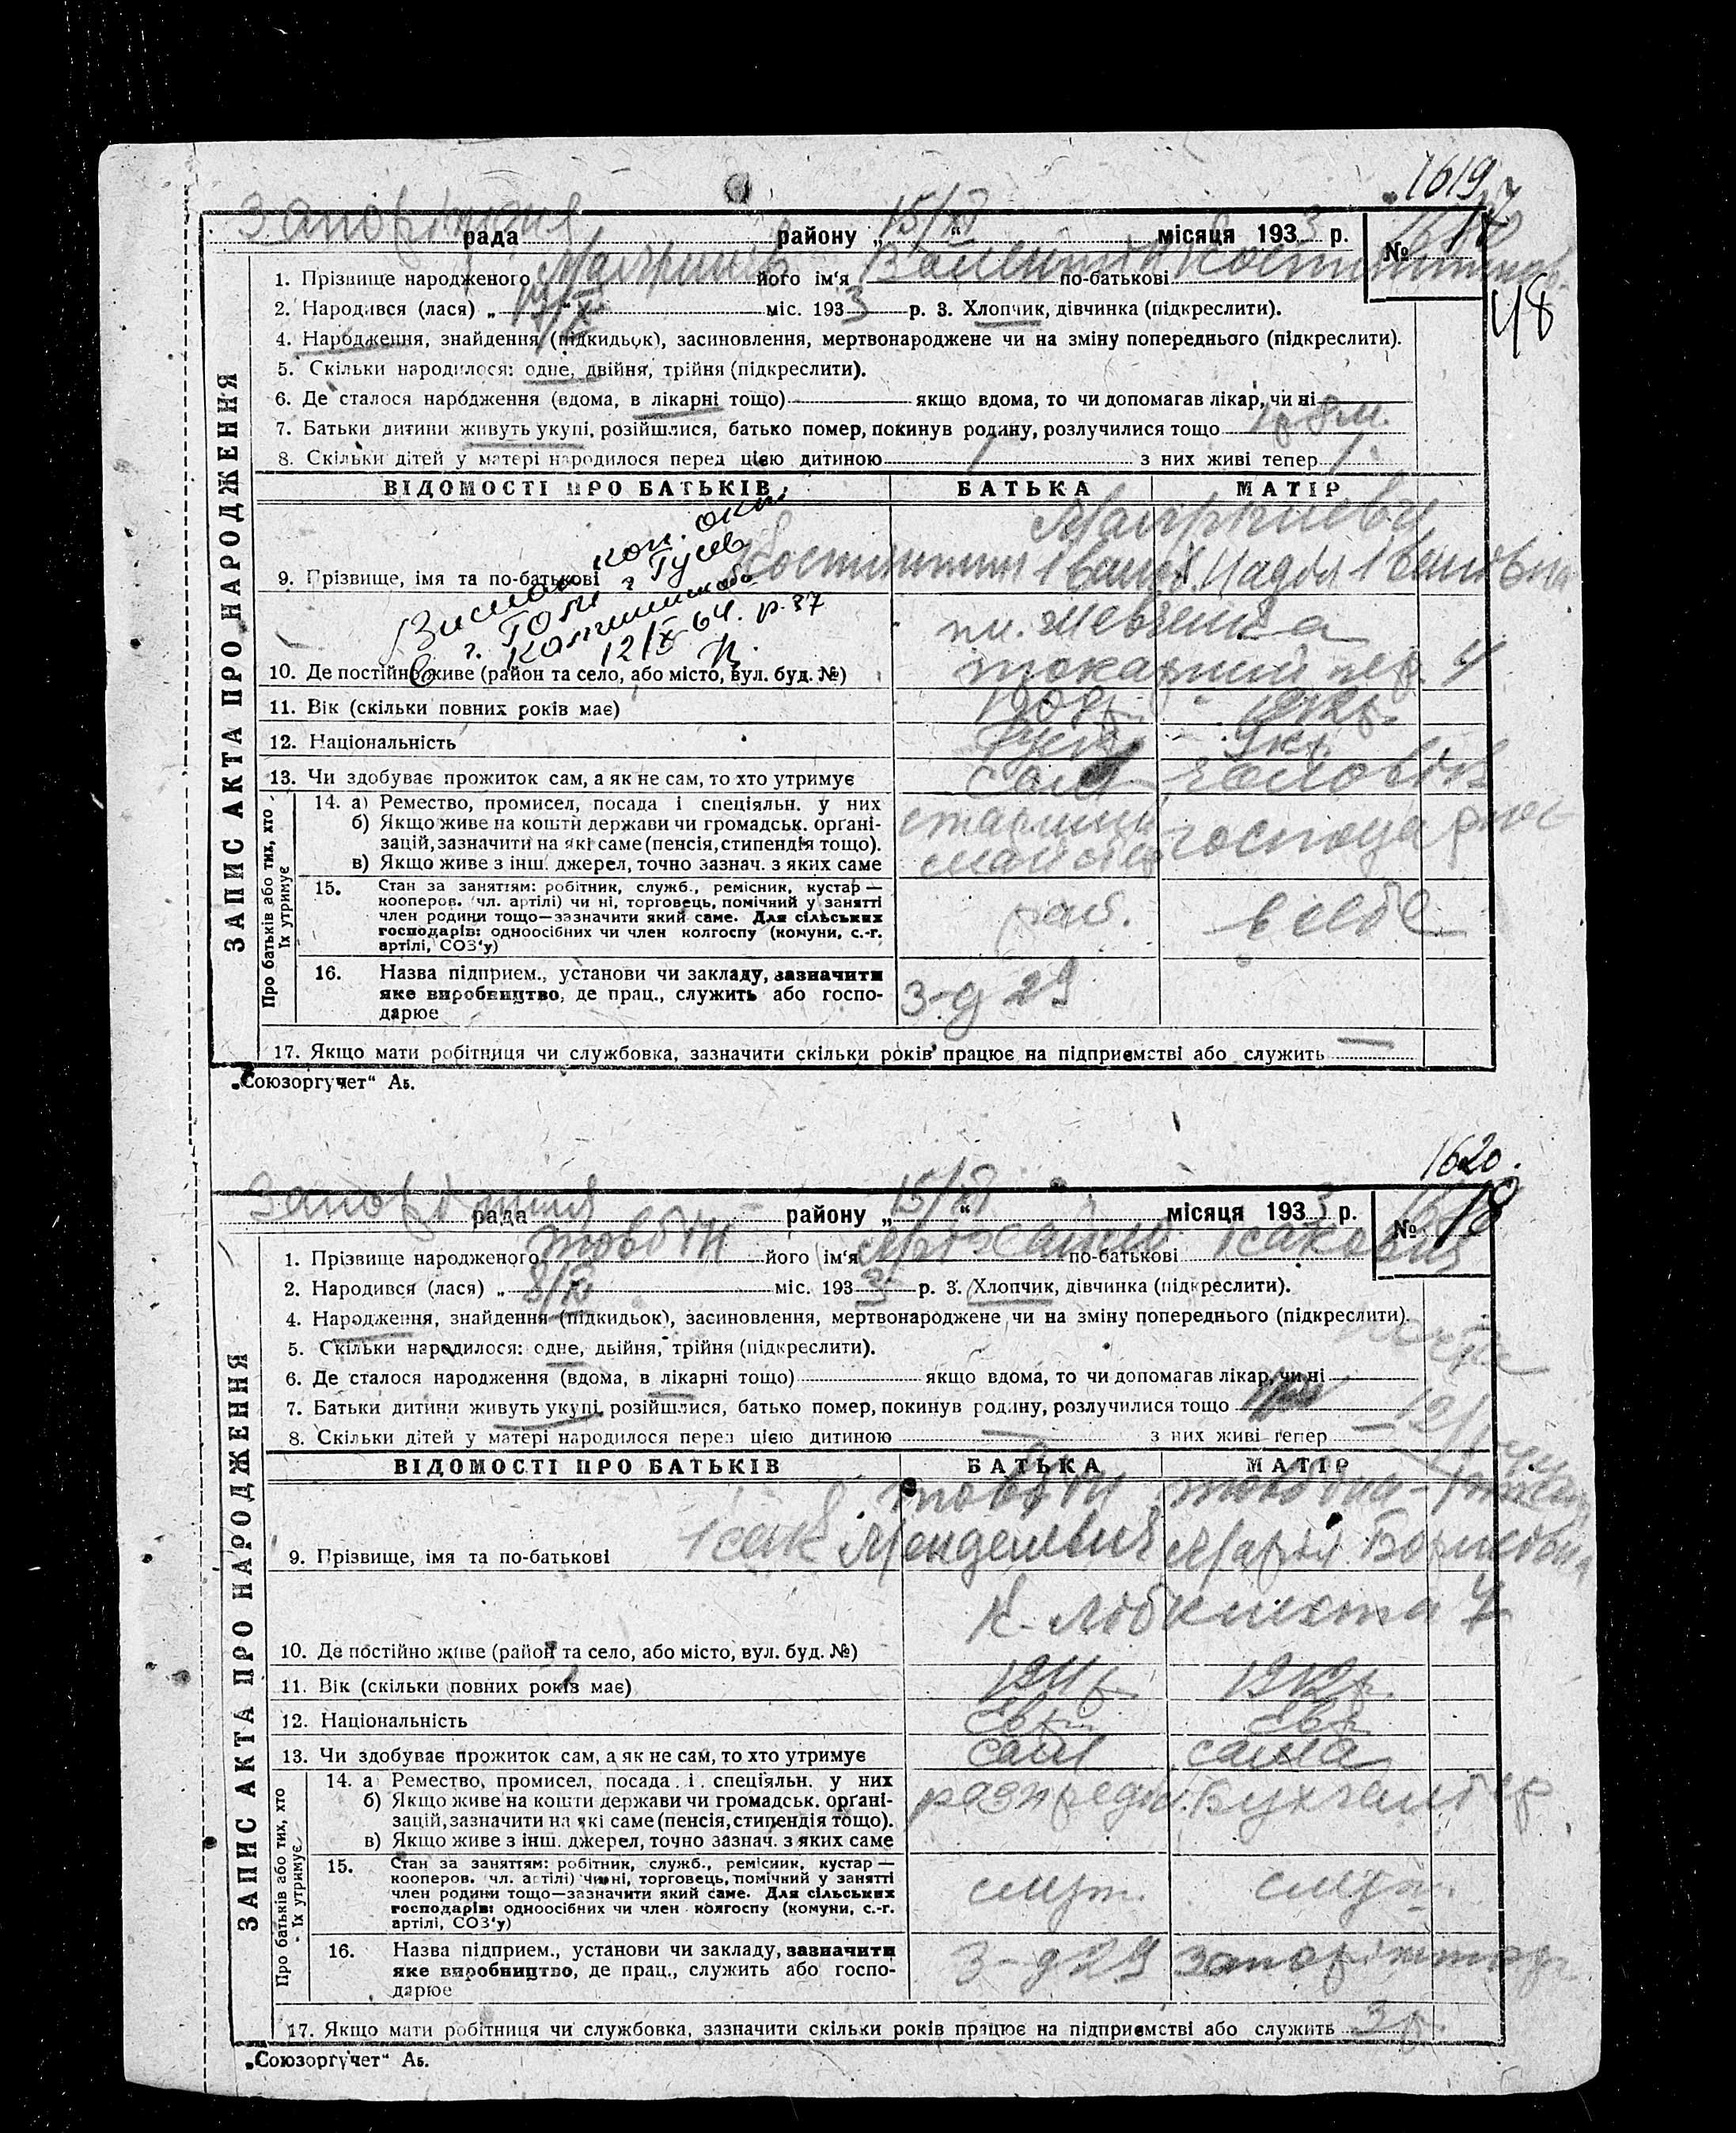 1619
17
Запоріжжя рада району „15/XI“ місяця 1933 р. №
48
ЗАПИС АКТА ПРО НАРОДЖЕННЯ
1. Прізвище народженого його ім‘я Валентин по-батькові
2. Народився (лася) „ міс. 1933 р. 3. Хлопчик, дівчинка (підкреслити).
4. Народження, знайдення (підкидьок), засиновлення, мертвонароджене чи на зміну попереднього (підкреслити).
5. Скільки народилося: одне, двійня, трійня (підкреслити).
6. Де сталося народження (вдома, в лікарні тощо) якщо вдома, то чи допомагав лікар, чи ні
7. Батьки дитини живуть укупі, розійшлися, батько помер, покинув родину, розлучилися тощо 1 р 8 м.
8. Скільки дітей у матері народилося перед цією дитиною 1 з них живі тепер 1.
ВІДОМОСТІ ПРО БАТЬКІВ БАТЬКА МАТІР
9. Прізвище, імя та по-батькові Надія Івановна
г. Гусев
12/X 64. р. 37
пл. Шевченка
10. Де постійно живе (район та село, або місто, вул. буд. №) токарний пер. 4
11. Вік (скільки повних років має) 1912 р.
12. Національність Рус. Укр.
13. Чи здобуває прожиток сам, а як не сам, то хто утримує сам чоловік
Про батьків або тих, хто їх утримує
14. а) Ремество, промисел, посада і спеціяльн. у них
б) Якщо живе на кошти держави чи громадськ. органі-
зацій, зазначити на які саме (пенсія, стипендія тощо).
в) Якщо живе з інш. джерел, точно зазнач. з яких саме
15. Стан за заняттям: робітник, служб., ремісник, кустар —
кооперов. (чл. артілі) чи ні, торговець, помічний у занятті
член родини тощо—зазначити який саме. Для сільських
господарів: одноосібних чи член колгоспу (комуни, с.-г.
артілі, СОЗ‘у)
роб. в себе
16. Назва підприєм., установи чи закладу, зазначити
яке виробництво, де прац., служить або госпо-
дарює
З-д 29
17. Якщо мати робітниця чи службовка, зазначити скільки років працює на підприємстві або служить —
„Союзоргучет“ А5.
1620.
18
Запоріжжя рада району „15/XI“ місяця 1933 р. №
ЗАПИС АКТА ПРО НАРОДЖЕННЯ
1. Прізвище народженого Товбін його ім‘я Михайло по-батькові Ісакович
2. Народився (лася) „ міс. 1933 р. 3. Хлопчик, дівчинка (підкреслити).
4. Народження, знайдення (підкидьок), засиновлення, мертвонароджене чи на зміну попереднього (підкреслити).
5. Скільки народилося: одне, двійня, трійня (підкреслити).
6. Де сталося народження (вдома, в лікарні тощо) якщо вдома, то чи допомагав лікар, чи ні
7. Батьки дитини живуть укупі, розійшлися, батько помер, покинув родину, розлучилися тощо
8. Скільки дітей у матері народилося перед цією дитиною — з них живі тепер —
ВІДОМОСТІ ПРО БАТЬКІВ БАТЬКА МАТІР
Товбін Товбіна
9. Прізвище, імя та по-батькові Ісак Менделевич Марія Борисовна
К. Лібкнехта
10. Де постійно живе (район та село, або місто, вул. буд. №)
11. Вік (скільки повних років має) 1911 р. 1912 р.
12. Національність Євр. Євр.
13. Чи здобуває прожиток сам, а як не сам, то хто утримує сам сама
Про батьків або тих, хто їх утримує
14. а) Ремество, промисел, посада і спеціяльн. у них
б) Якщо живе на кошти держави чи громадськ. органі-
зацій, зазначити на які саме (пенсія, стипендія тощо).
в) Якщо живе з інш. джерел, точно зазнач. з яких саме
бухгалтер
15. Стан за заняттям: робітник, служб., ремісник, кустар —
кооперов. (чл. артілі) чи ні, торговець, помічний у занятті
член родини тощо—зазначити який саме. Для сільських
господарів: одноосібних чи член колгоспу (комуни, с.-г.
артілі, СОЗ‘у)
служ. служ.
16. Назва підприєм., установи чи закладу, зазначити
яке виробництво, де прац., служить або госпо-
дарює
З-д 29
17. Якщо мати робітниця чи службовка, зазначити скільки років працює на підприємстві або служить 3 р.
„Союзоргучет“ А5.